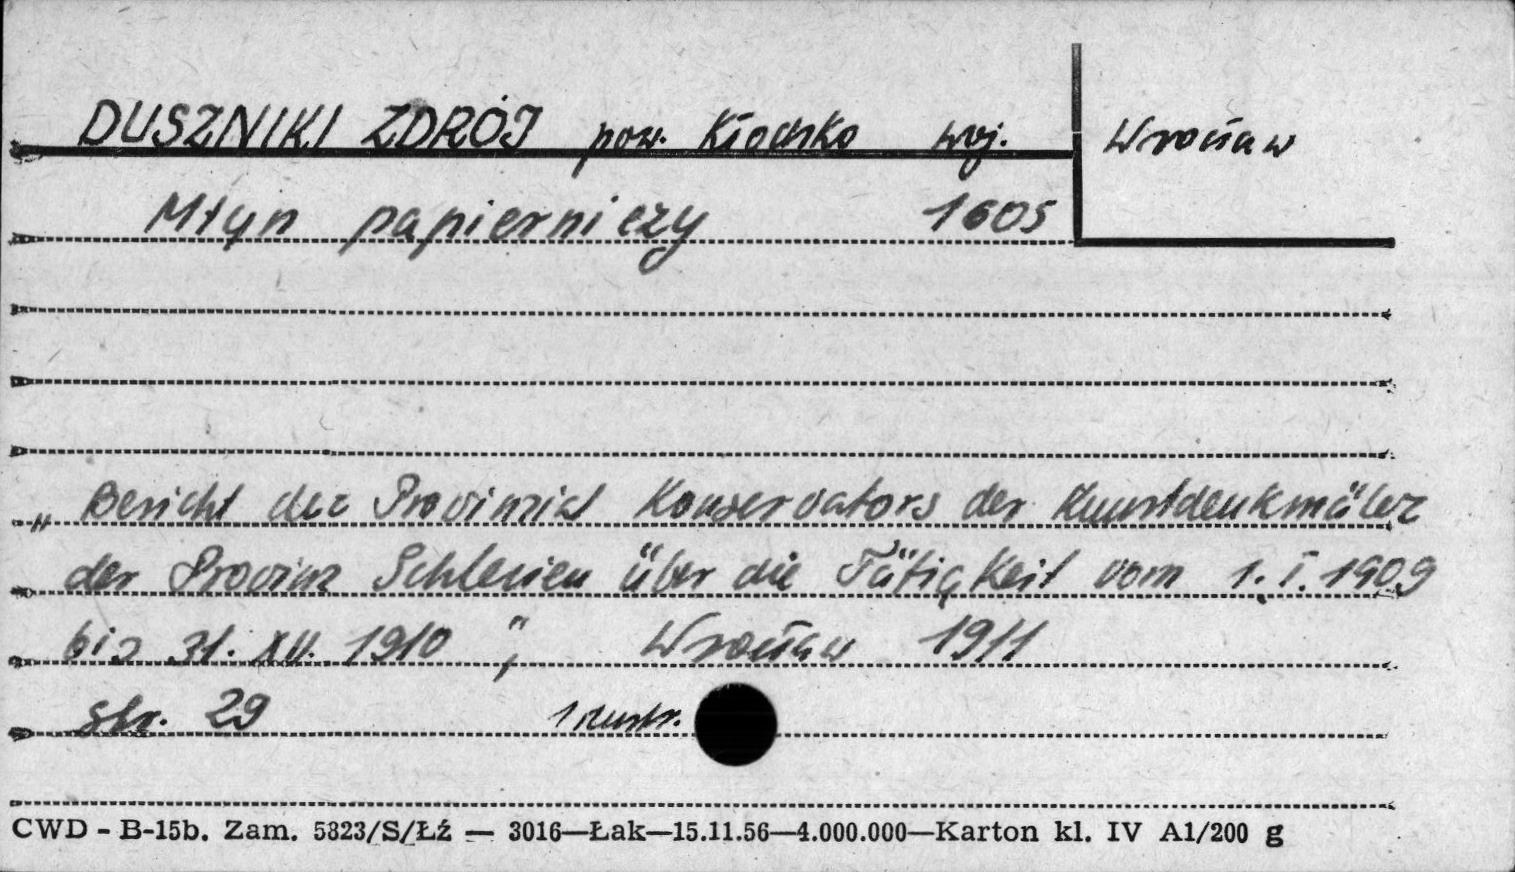 DUSZNIKI ZDRÓJ pow. Kłodzko woj. Wrocław
Młyn papierniczy 1605
„Bericht des Provinzial Konservators der Kunstdenkmäler
der Provinz Schlesien über die Tätigkeit vom 1.I.1909
bis 31.XII.1910", Wrocław 1911
str. 29 1 ilustr.
CWD - B-15b. Zam. 5823/S/Łź — 3016—Łak—15.11.56—4.000.000—Karton kl. IV A1/200 g